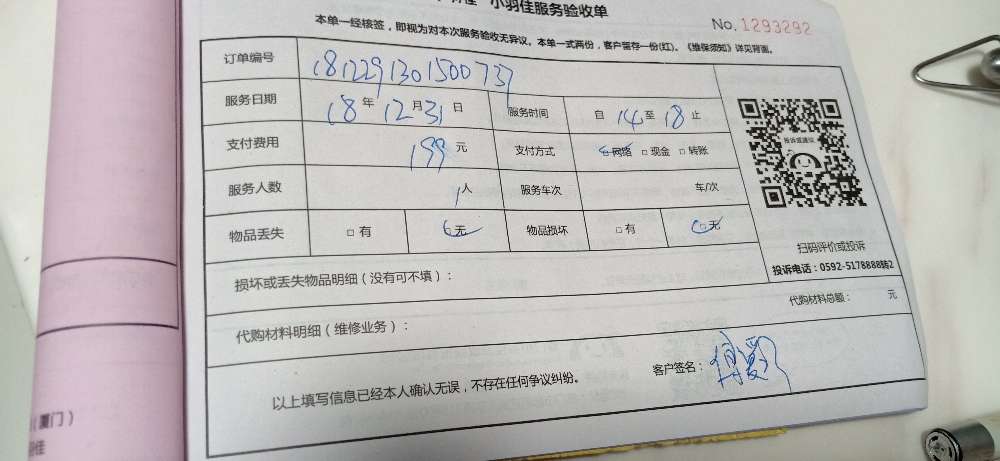 小羽佳服务验收单
No. 1293292
本单一经核签，即视为对本次服务验收无异议。本单一式两份，客户留存一份(红)。《维保须知》详见背面。
订单编号 1812291301500737
服务日期 18 年 12 月 31 日 服务时间 自 14 至 18 止
支付费用 199 元 支付方式 网络 □ 现金 □ 转账
服务人数 1 人 服务车次 车/次
物品丢失 □ 有 无 物品损坏 □ 有 □ 无
投诉或建议
扫码评价或投诉
投诉电话：0592-5178888转2
损坏或丢失物品明细（没有可不填）：
代购材料明细（维修业务）：
代购材料总额： 元
以上填写信息已经本人确认无误，不存在任何争议纠纷。
客户签名：
（厦门）